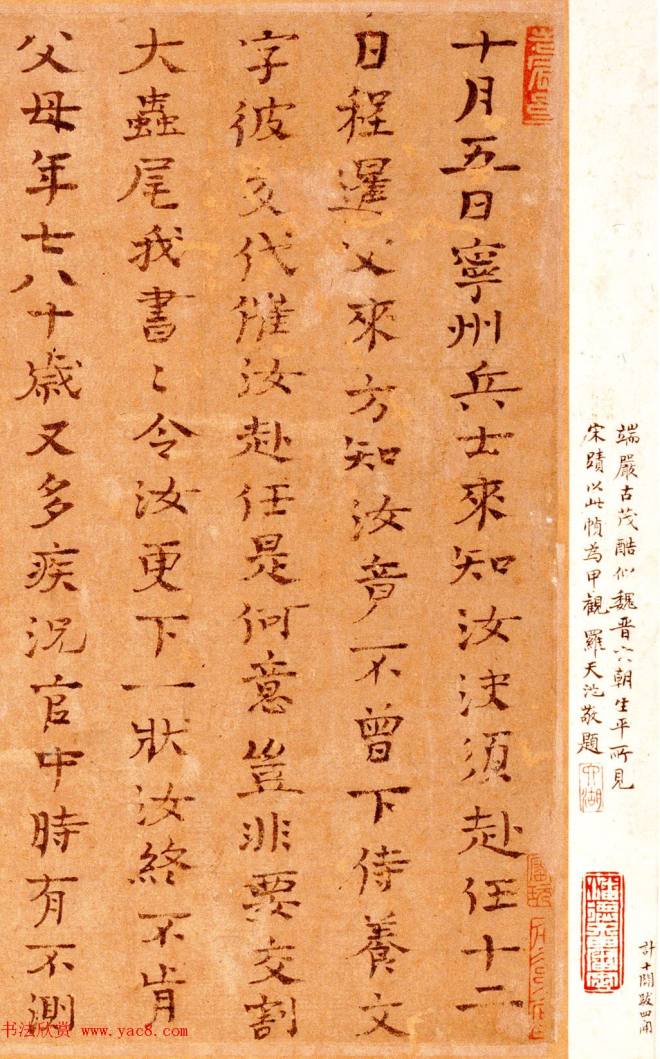 端嚴古茂酷似魏晉六朝生平所見
宋蹟以此幀為甲觀 羅天池敬題
十月五日寧州兵士來知汝決須赴任十二
日程暹父來方知汝竟不曾下侍養文
字彼交代催汝赴任是何意豈非要交割
大蟲尾我書〻令汝更下一狀汝終不肯
父母年七八十歲又多疾況官中時有不測
书法欣赏 www.yac8.com